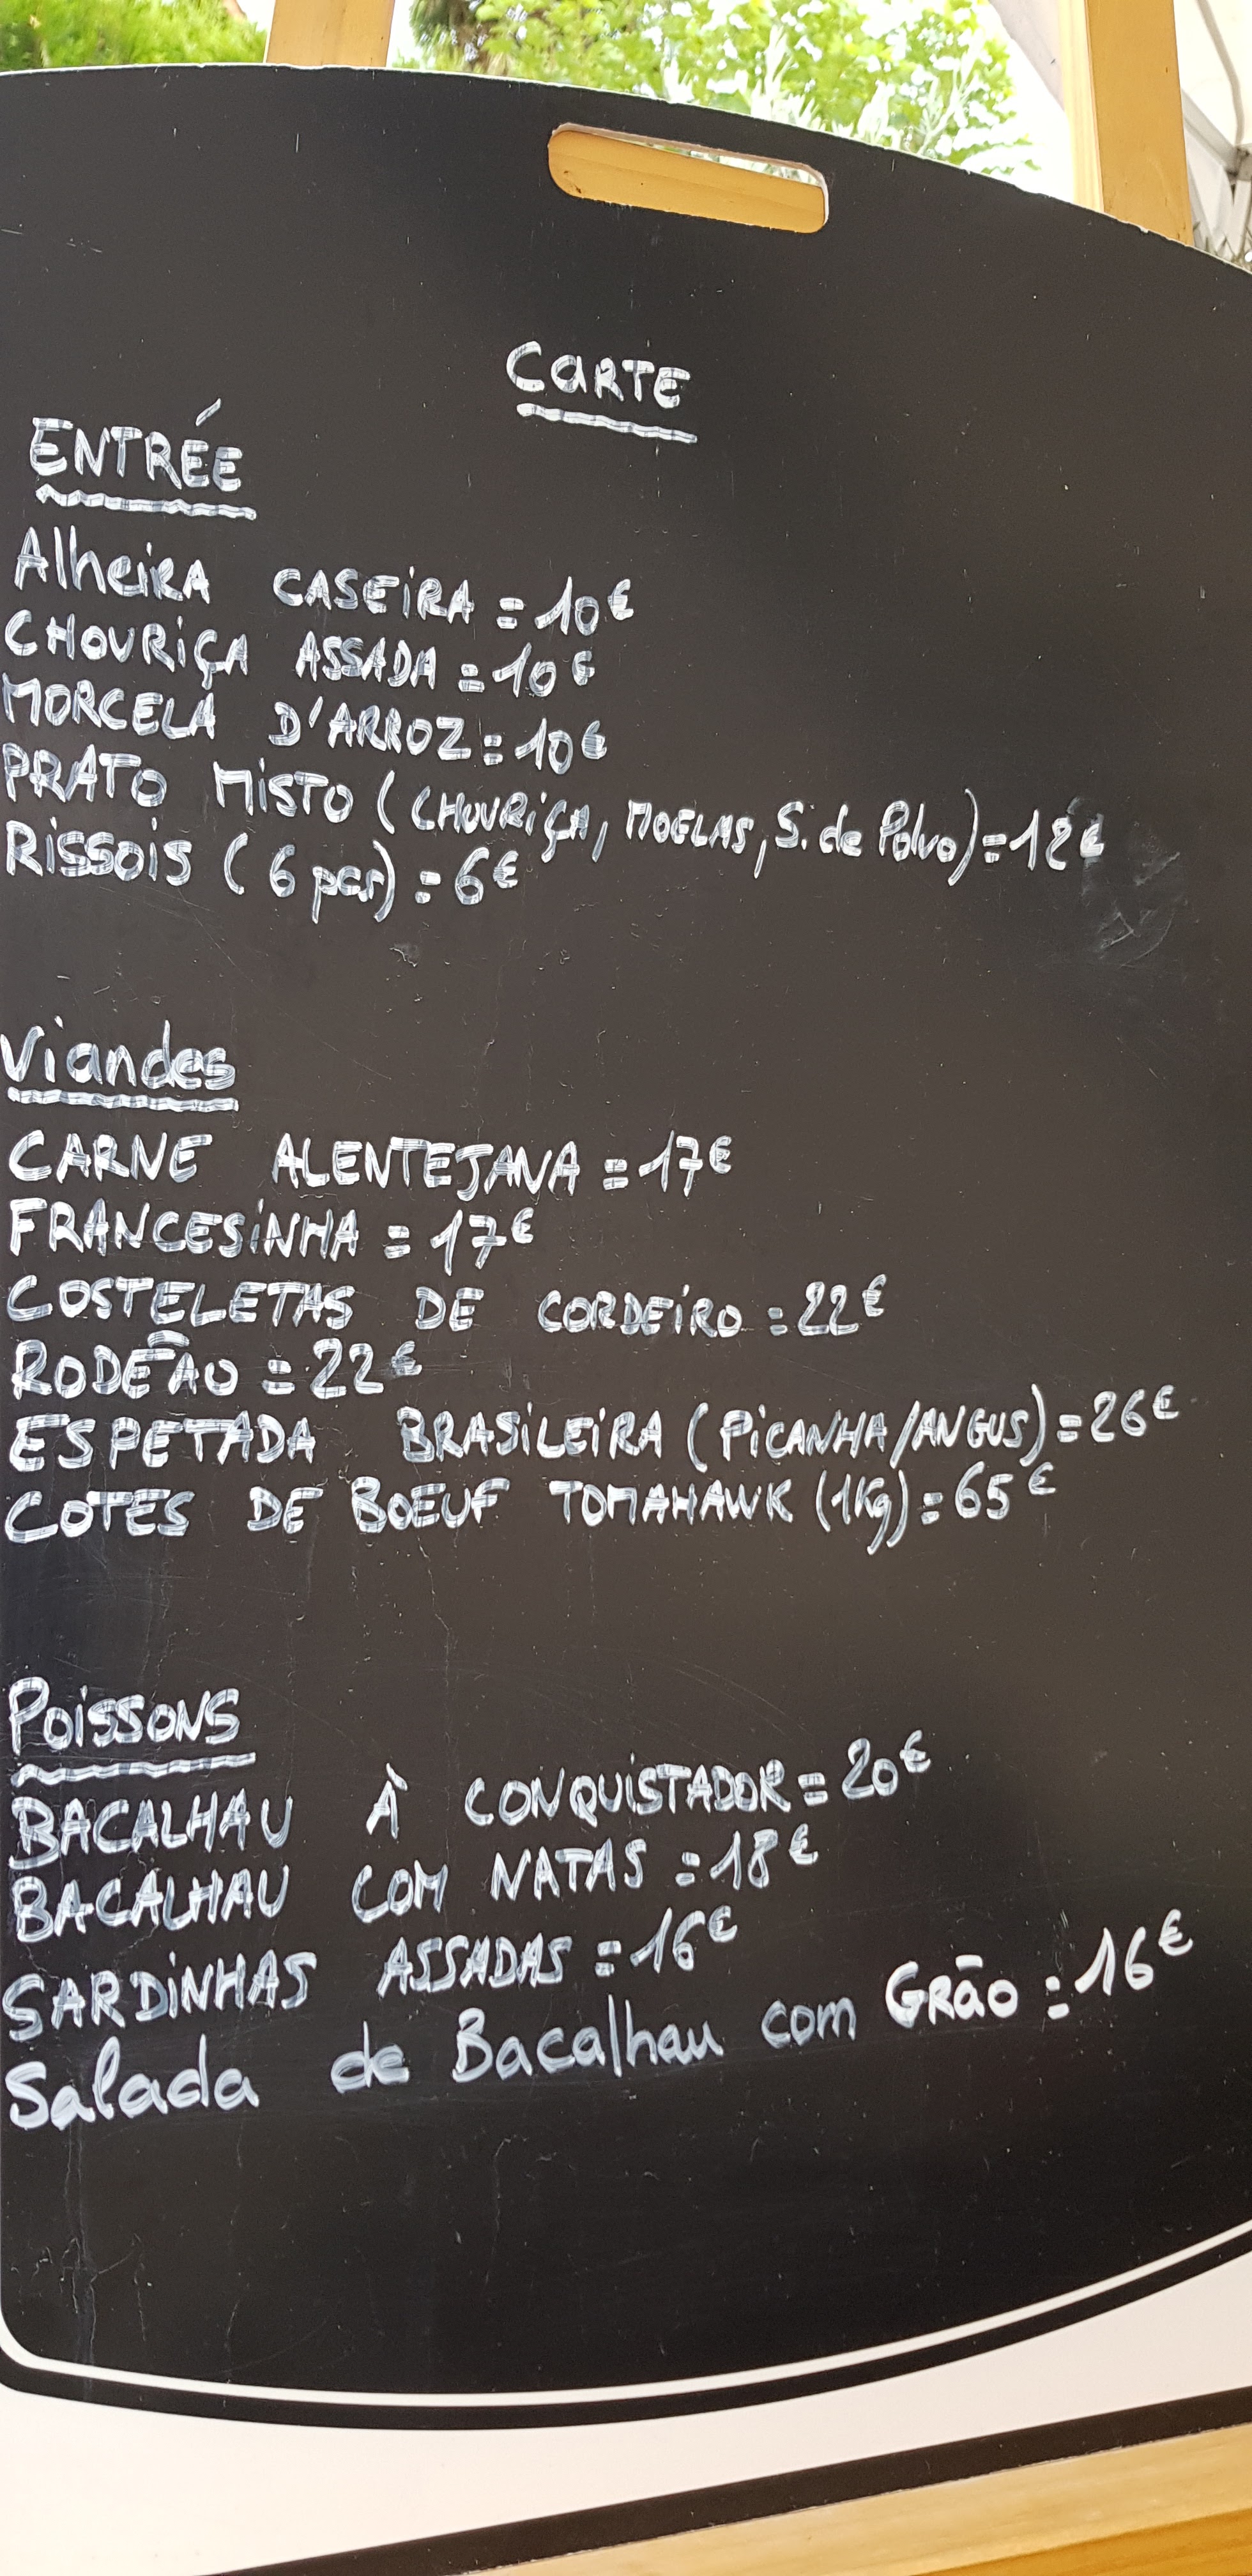 CARTE
ENTRÉE
Alheira CASEIRA = 10€
CHOURIÇA ASSADA = 10€
MORCELA D'ARROZ = 10€
PRATO MISTO (CHOURIÇA, MOELAS, S. de Polvo) = 12€
RISSOIS (6 pcs) = 6€
Viandes
CARNE ALENTEJANA = 17€
FRANCESINHA = 17€
COSTELETAS DE CORDEIRO = 22€
RODEÃO = 22€
ESPETADA BRASILEIRA (PICANHA/ANGUS) = 26€
COTES DE BOEUF TOMAHAWK (1Kg) = 65€
POISSONS
BACALHAU À CONQUISTADOR = 20€
BACALHAU COM NATAS = 18€
SARDINHAS ASSADAS = 16€
Salada de Bacalhau com GRÃO = 16€